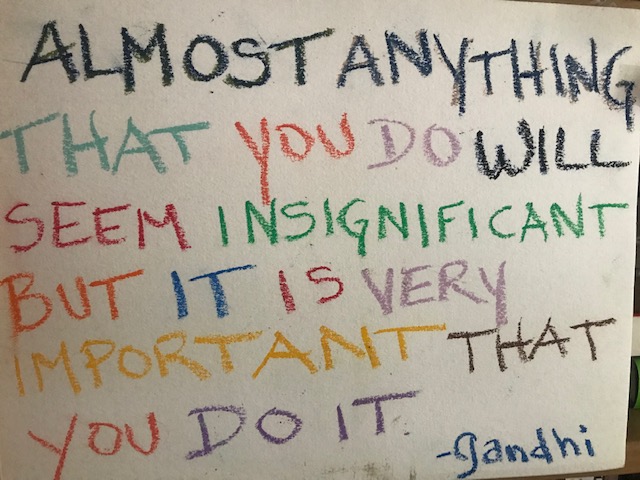 ALMOST ANYTHING
THAT YOU DO WILL
SEEM INSIGNIFICANT
BUT IT IS VERY
IMPORTANT THAT
YOU DO IT.
-gandhi